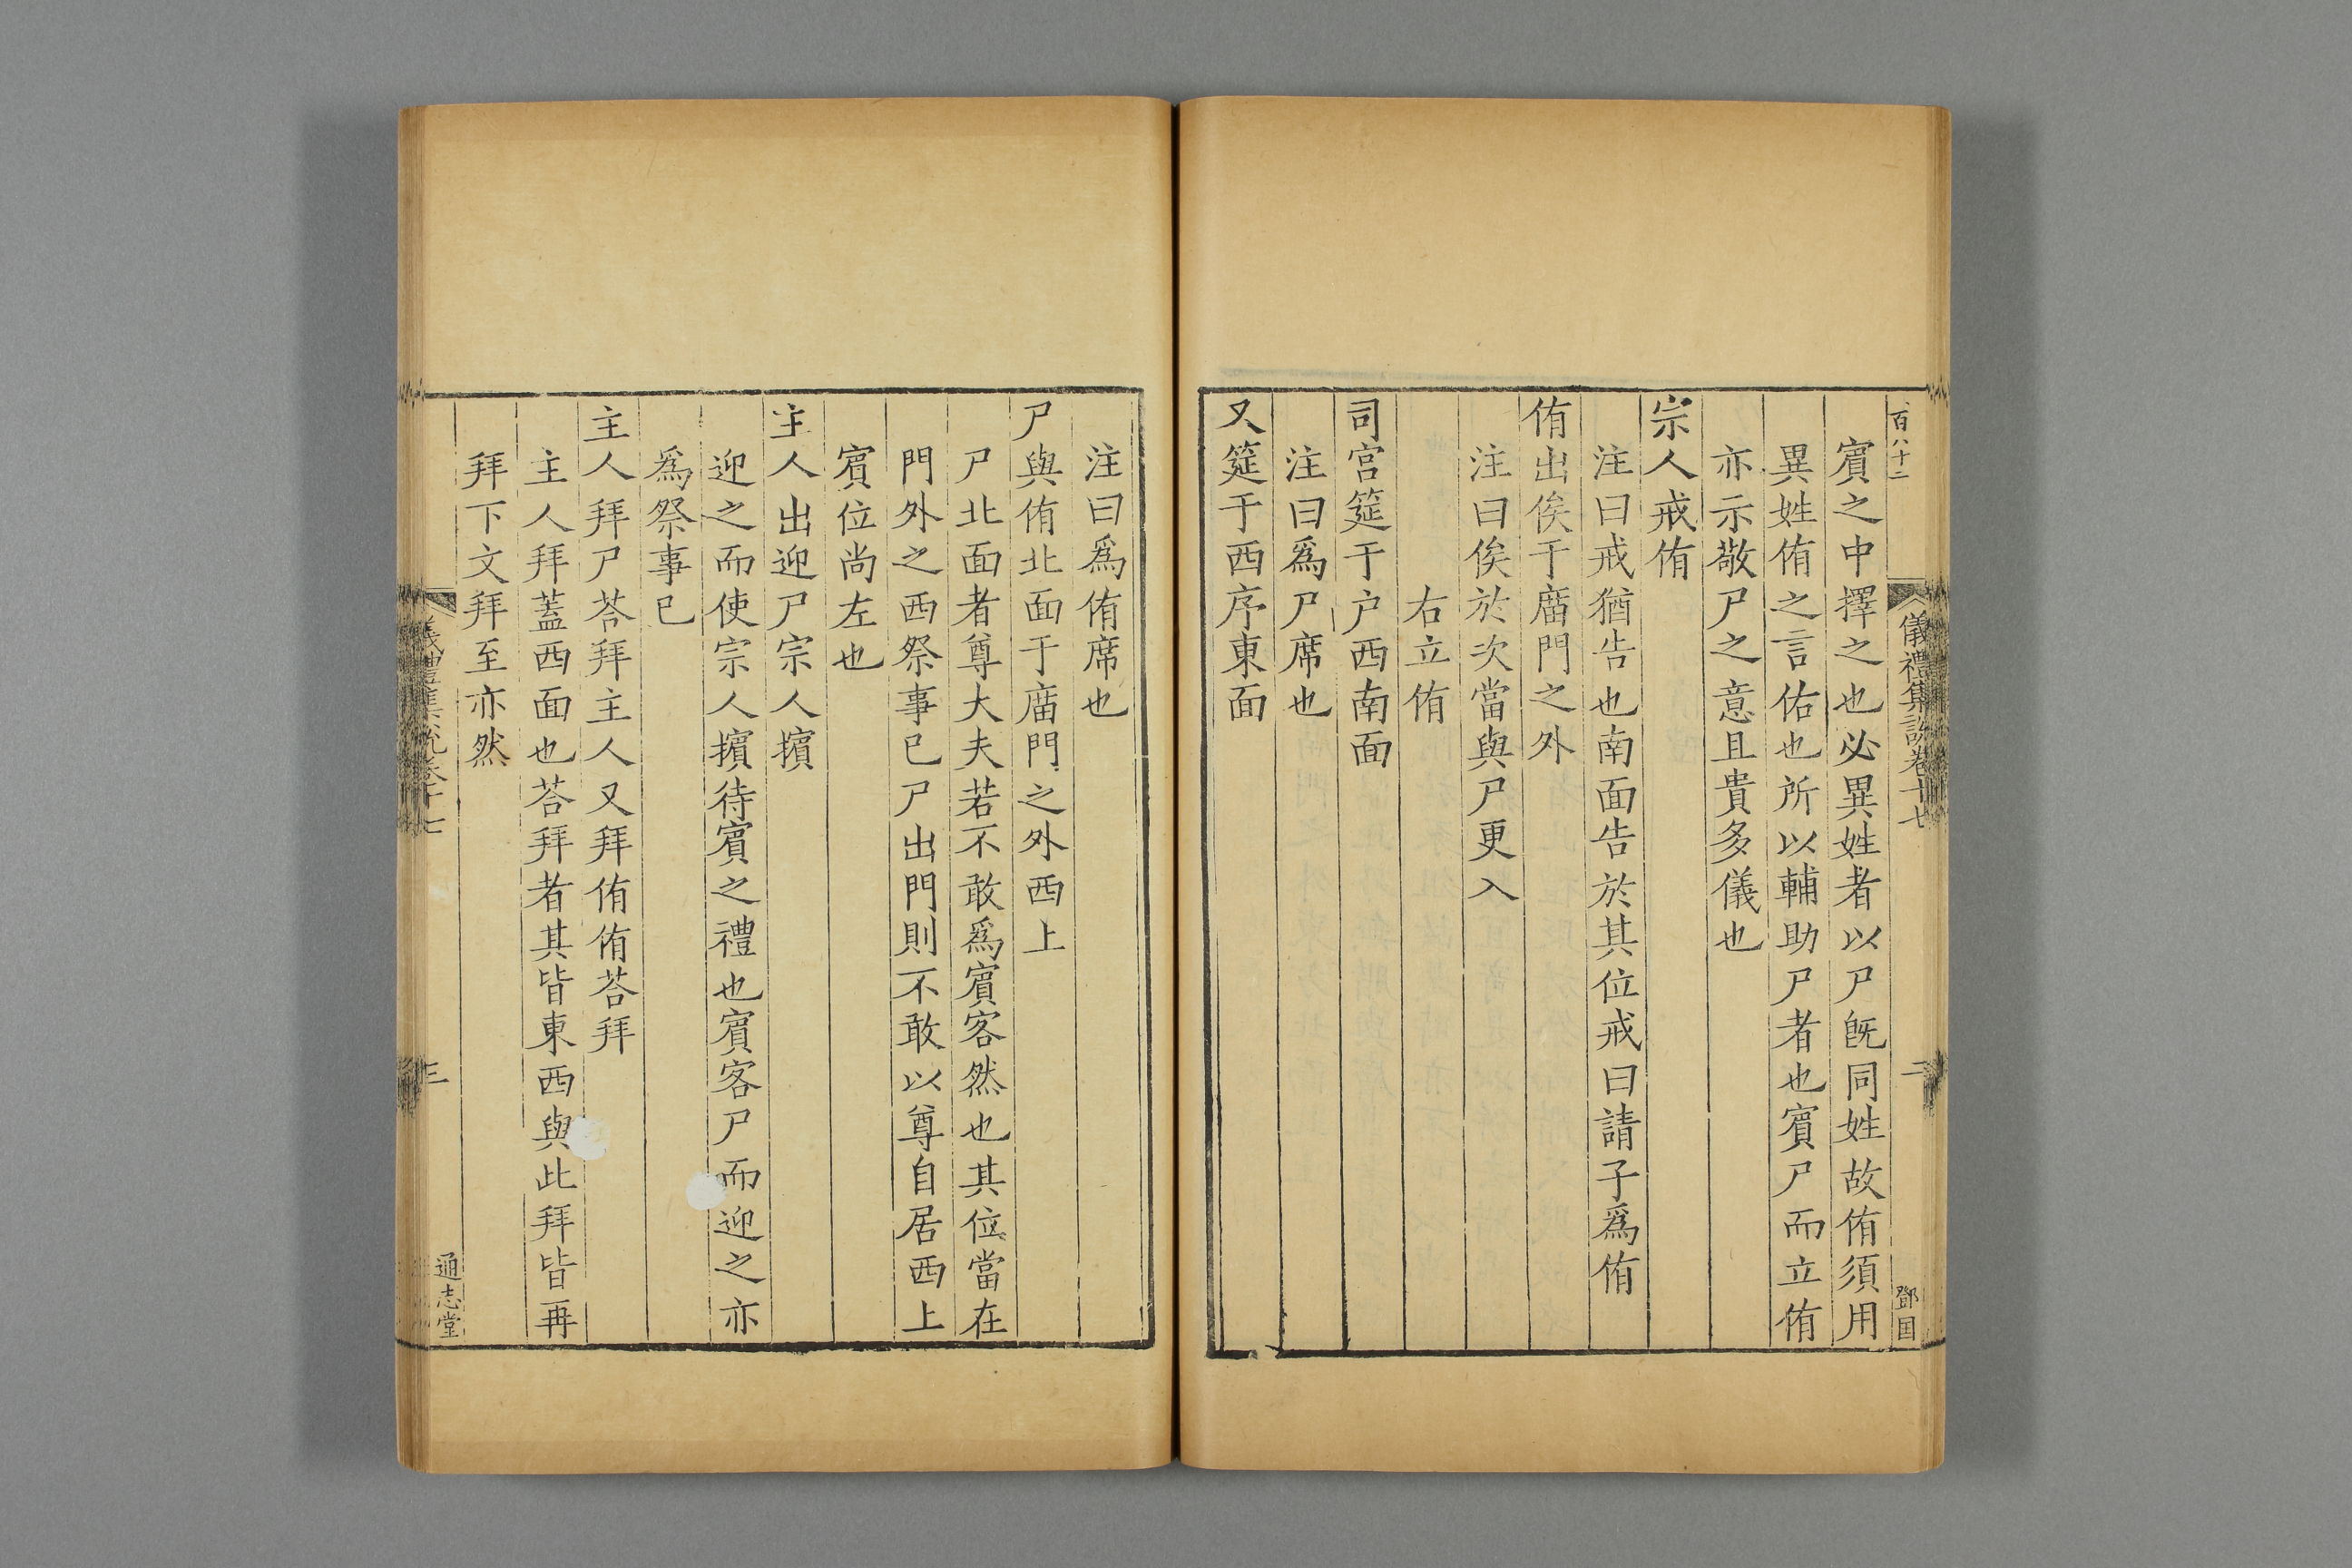 百八十二
儀禮集說卷十七
二
鄧国
賔之中擇之也必異姓者以尸旣同姓故侑須用
異姓侑之言佑也所以輔助尸者也賔尸而立侑
亦示敬尸之意且貴多儀也
宗人戒侑
注曰戒猶告也南面告於其位戒曰請子爲侑
侑出俟于廟門之外
注曰俟於次當與尸更入
右立侑
司宮筵于户西南面
注曰爲尸席也
又筵于西序東面
注曰爲侑席也
尸與侑北面于廟門之外西上
尸北面者尊大夫若不敢爲賔客然也其位當在
門外之西祭事已尸出門則不敢以尊自居西上
賔位尚左也
主人出迎尸宗人擯
迎之而使宗人擯待賔之禮也賔客尸而迎之亦
爲祭事已
主人拜尸荅拜主人又拜侑侑荅拜
主人拜蓋西面也荅拜者其皆東西與此拜皆再
拜下文拜至亦然
儀禮集說卷十七
三
通志堂